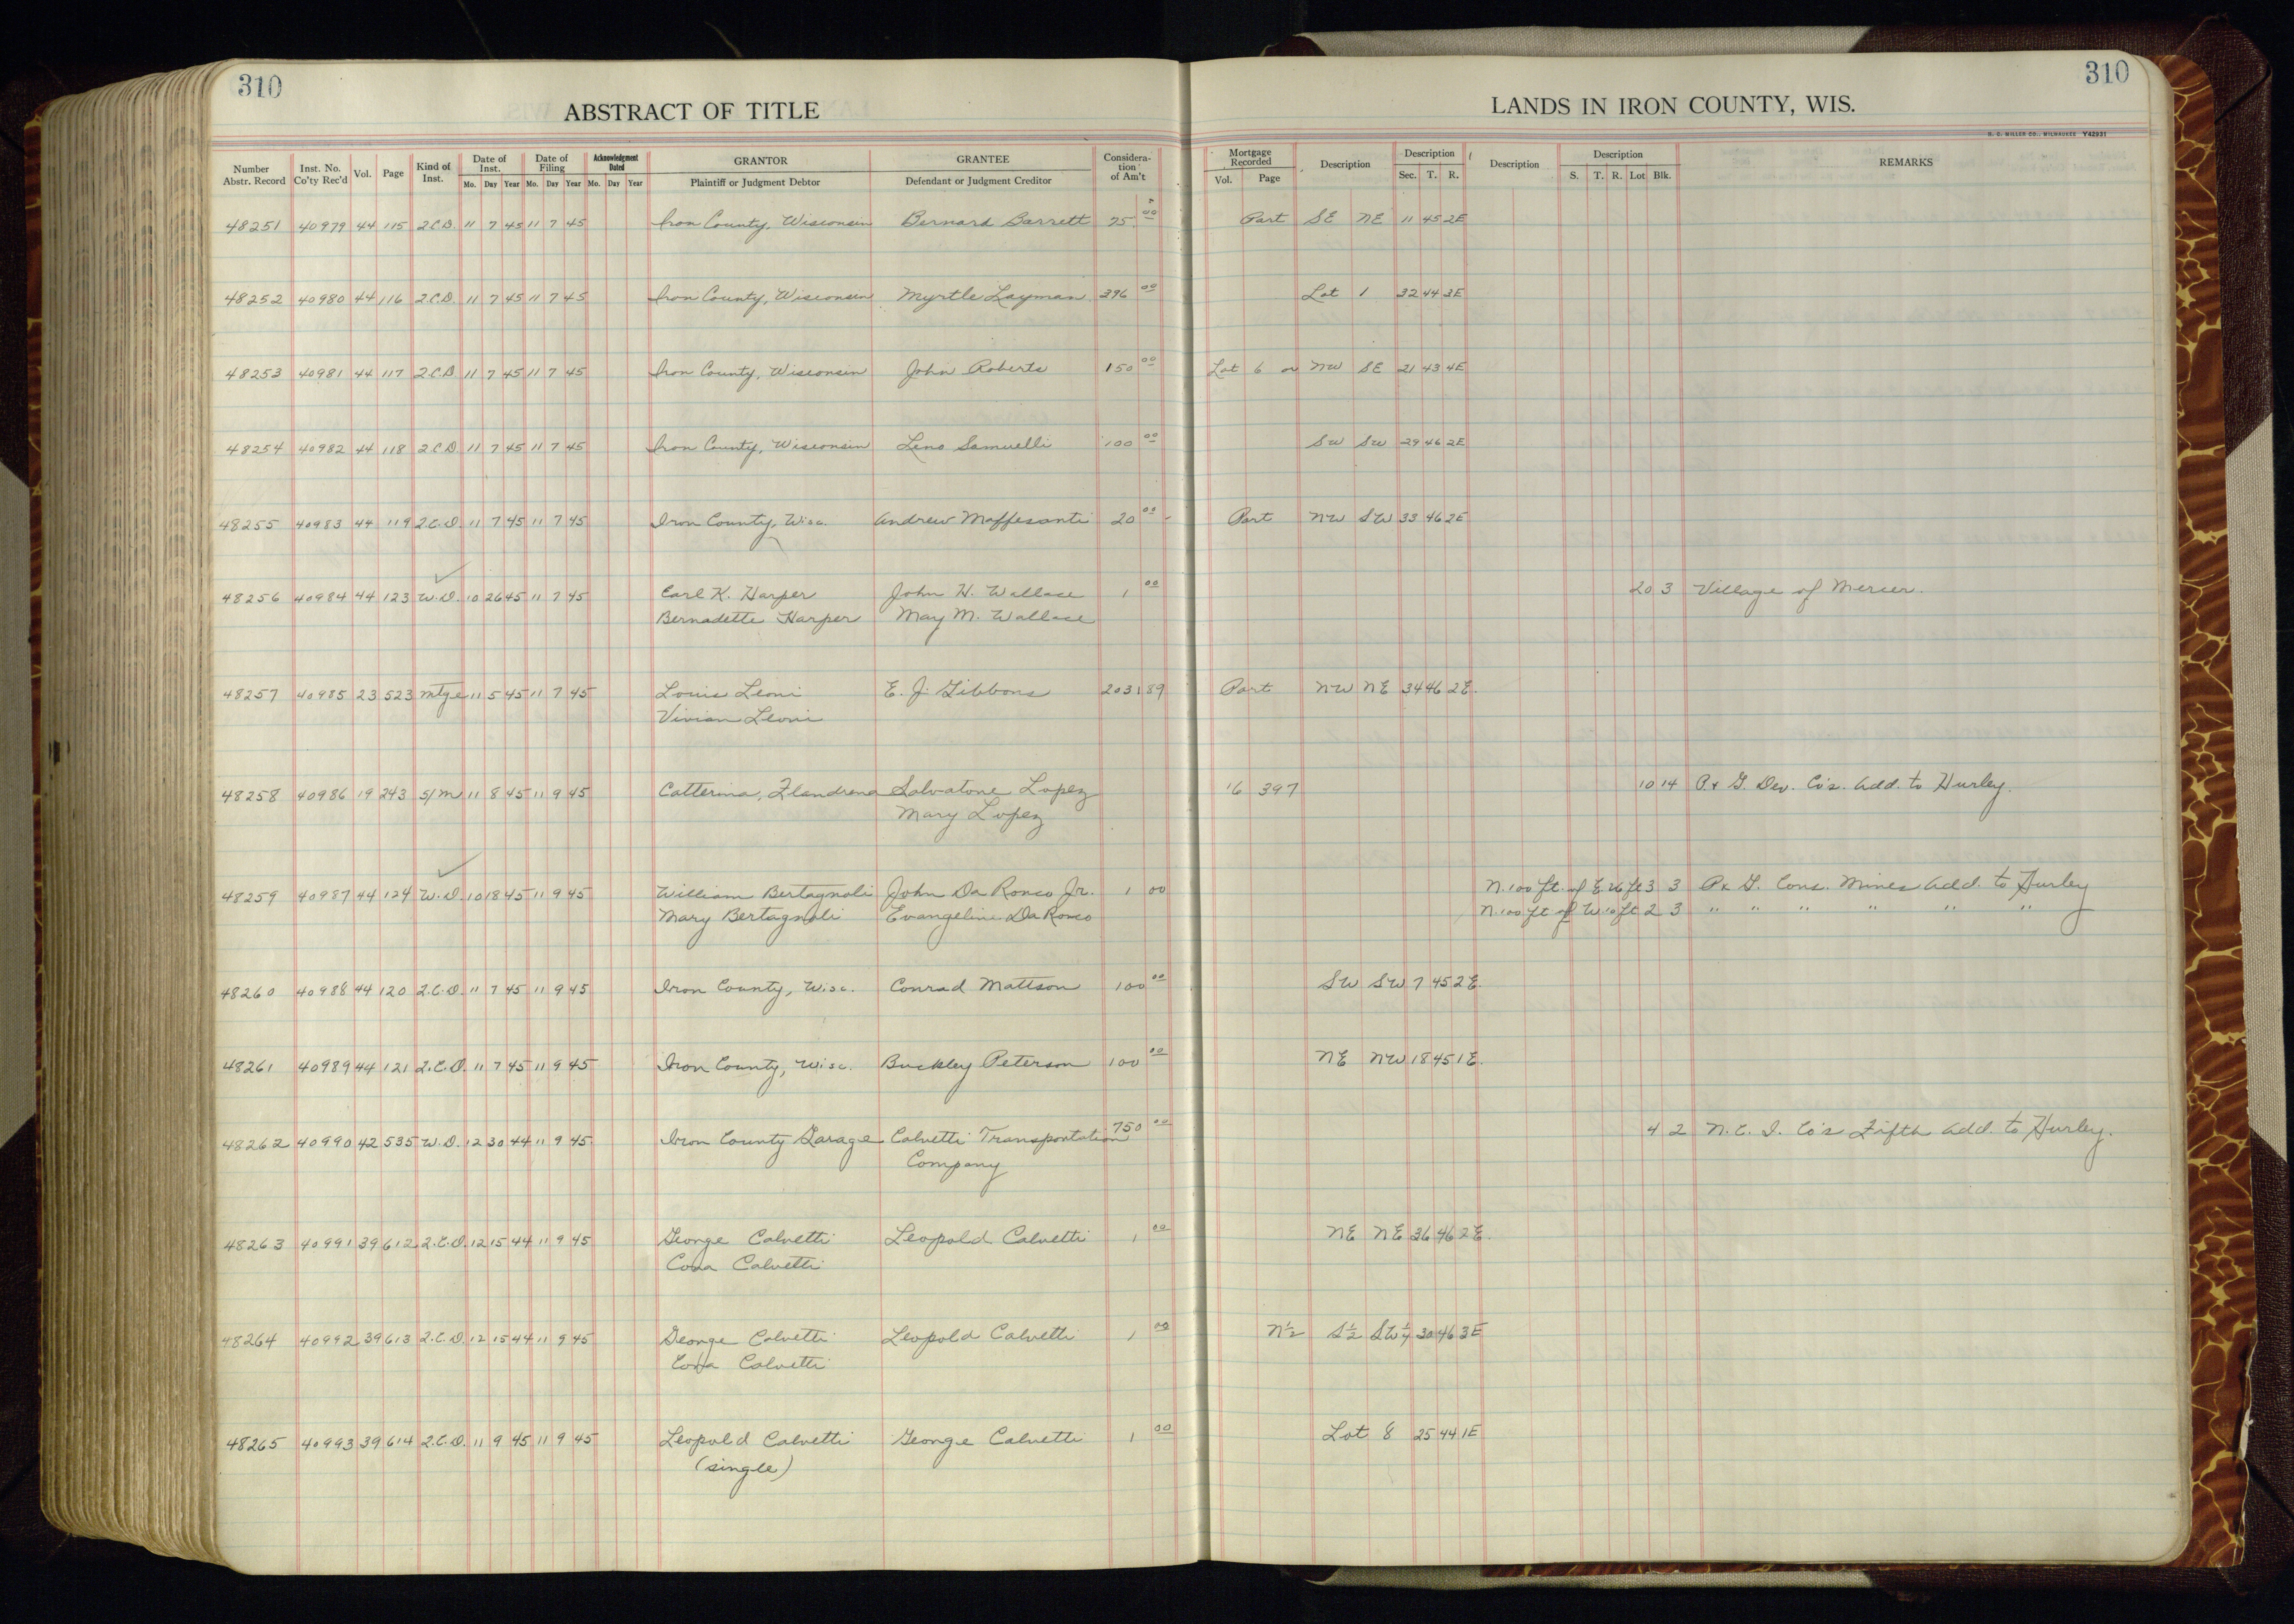 310
310
ABSTRACT OF TITLE
LANDS IN IRON COUNTY, WIS.
H. C. MILLER CO., MILWAUKEE Y42931
Number Abstr. Record
Inst. No. Co'ty Rec'd
Vol.
Page
Kind of Inst.
Date of Inst.
Mo. Day Year
Date of Filing
Mo. Day Year
Acknowledgment Dated
Mo. Day Year
GRANTOR
Plaintiff or Judgment Debtor
GRANTEE
Defendant or Judgment Creditor
Consideration of Am't
Mortgage Recorded
Vol. Page
Description
Description
Sec. T. R.
Description
Description
S. T. R. Lot Blk.
REMARKS
48251 40979 44 115 2.C.D. 11 7 45 11 7 45 Iron County, Wisconsin Bernard Barrett 75 00 Part SE NE 11 45 2E
48252 40980 44 116 2.C.D. 11 7 45 11 7 45 Iron County, Wisconsin Myrtle Layman 396 00 Lot 1 32 44 3E
48253 40981 44 117 2.C.D 11 7 45 11 7 45 Iron County, Wisconsin John Roberts 150 00 Lot 6 or NW SE 21 43 4E
48254 40982 44 118 2.C.D 11 7 45 11 7 45 Iron County, Wisconsin Leno Samuelli 100 00 SW SW 29 46 2E
48255 40983 44 119 2.C.D. 11 7 45 11 7 45 Iron County, Wisc. Andrew Maffesanti 20 00 Part NW SW 33 46 2E
48256 40984 44 123 W.D. 10 26 45 11 7 45 Earl K. Harper John H. Wallace 1 00 20 3 Village of Mercer.
Bernadette Harper May M. Wallace
48257 40985 23 523 mtge 11 5 45 11 7 45 Louis Leoni E. J. Gibbons 2031 89 Part NW NE 34 46 2E.
Vivian Leoni
48258 40986 19 243 S/M 11 8 45 11 9 45 Catterina, Flandrena Salvatore Lopez 16 397 10 14 P. & G. Dev. Co's. Add. to Hurley.
Mary Lopez
48259 40987 44 124 W.D. 10 18 45 11 9 45 William Bertagnoli John Da Ronco Jr. 1 00 N. 100 ft. of E. 26 ft 3 3 P. & G. Cons. Mines Add. to Hurley
Mary Bertagnoli Evangeline Da Ronco N. 100 ft of W. 10 ft 2 3 " " " " " "
48260 40988 44 120 2.C.D. 11 7 45 11 9 45 Iron County, Wisc. Conrad Mattson 100 00 SW SW 7 45 2E.
48261 40989 44 121 2.C.D. 11 7 45 11 9 45 Iron County, Wisc. Buckley Peterson 100 00 NE NW 18 45 1E.
48262 40990 42 535 W.D. 12 30 44 11 9 45 Iron County Garage Calvetti Transportation 750 00 4 2 N.C.I. Co's Fifth Add. to Hurley.
Company
48263 40991 39 612 2.C.D. 12 15 44 11 9 45 George Calvetti Leopold Calvetti 1 00 NE NE 36 46 2E.
Calvetti
48264 40992 39 613 2.C.D. 12 15 44 11 9 45 George Calvetti Leopold Calvetti 1 00 N½ S½ SW¼ 30 46 3E
Calvetti
48265 40993 39 614 2.C.D. 11 9 45 11 9 45 Leopold Calvetti George Calvetti 1 00 Lot 8 25 44 1E
(single)